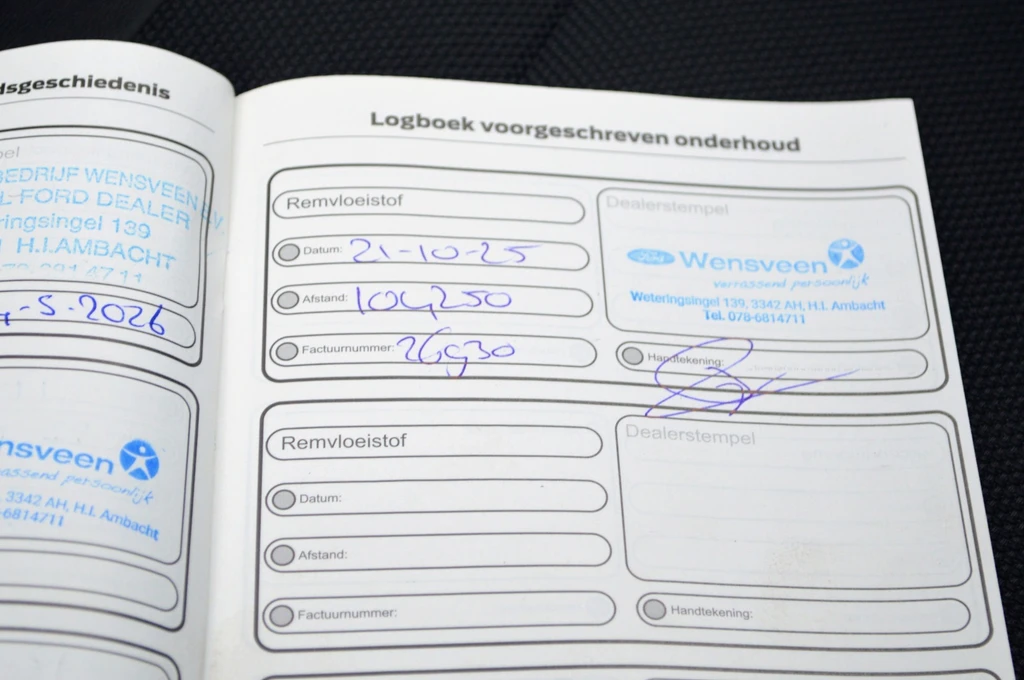 dsgeschiedenis
pel
BEDRIJF WENSVEEN B.V.
L FORD DEALER
ringsingel 139
H.I.AMBACHT
-5-2026
nsveen
assend persoonlijk
3342 AH, H.I. Ambacht
-6814711
Logboek voorgeschreven onderhoud
Remvloeistof
Datum: 21-10-25
Afstand: 104250
Factuurnummer: 26930
Dealerstempel
Ford Wensveen
verrassend persoonlijk
Weteringsingel 139, 3342 AH, H.I. Ambacht
Tel. 078-6814711
Handtekening:
Remvloeistof
Datum:
Afstand:
Factuurnummer:
Dealerstempel
Handtekening: